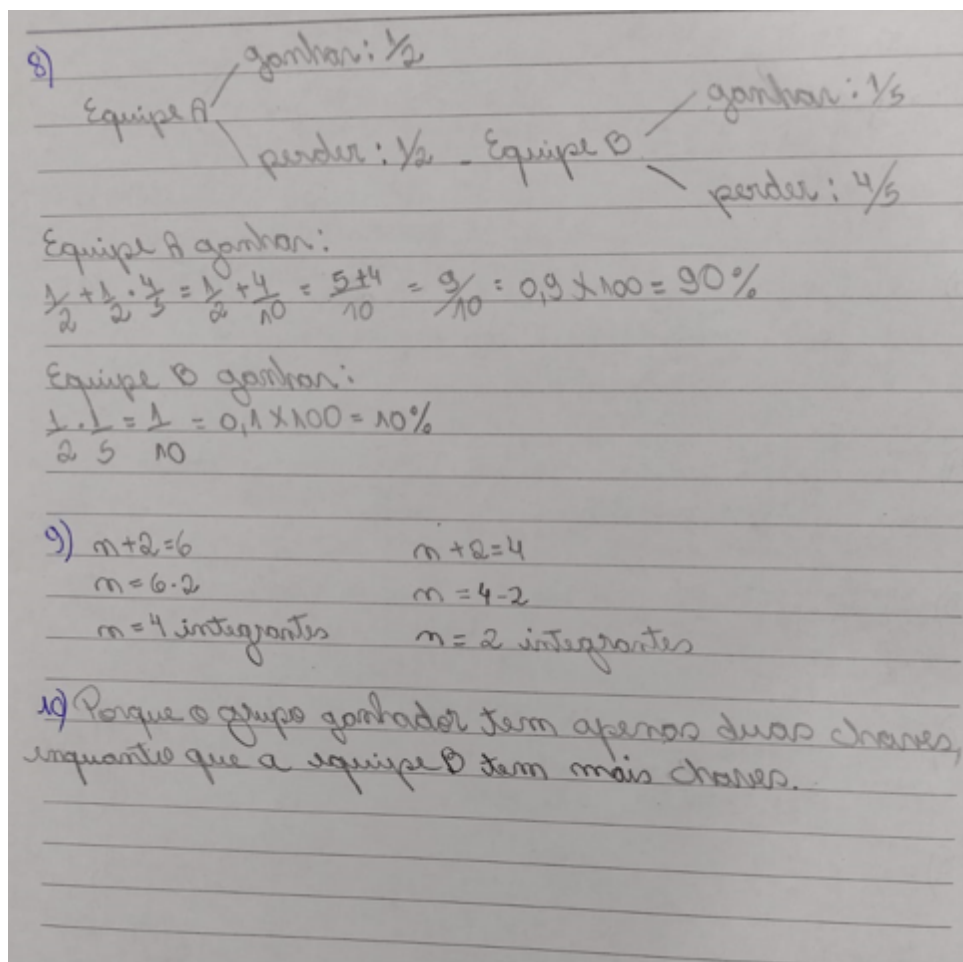 8)
ganhar: 1/2
Equipe A
perder: 1/2 - Equipe B
ganhar: 1/5
perder: 4/5
Equipe A ganhar:
1/2 + 1/2 · 4/5 = 1/2 + 4/10 = 5+4/10 = 9/10 = 0,9 X 100 = 90%
Equipe B ganhar:
1/2 · 1/5 = 1/10 = 0,1 X 100 = 10%
9) n+2=6
n=6-2
n=4 integrantes
n+2=4
n=4-2
n=2 integrantes
10) Porque o grupo ganhador tem apenas duas chaves,
enquanto que a equipe B tem mais chaves.